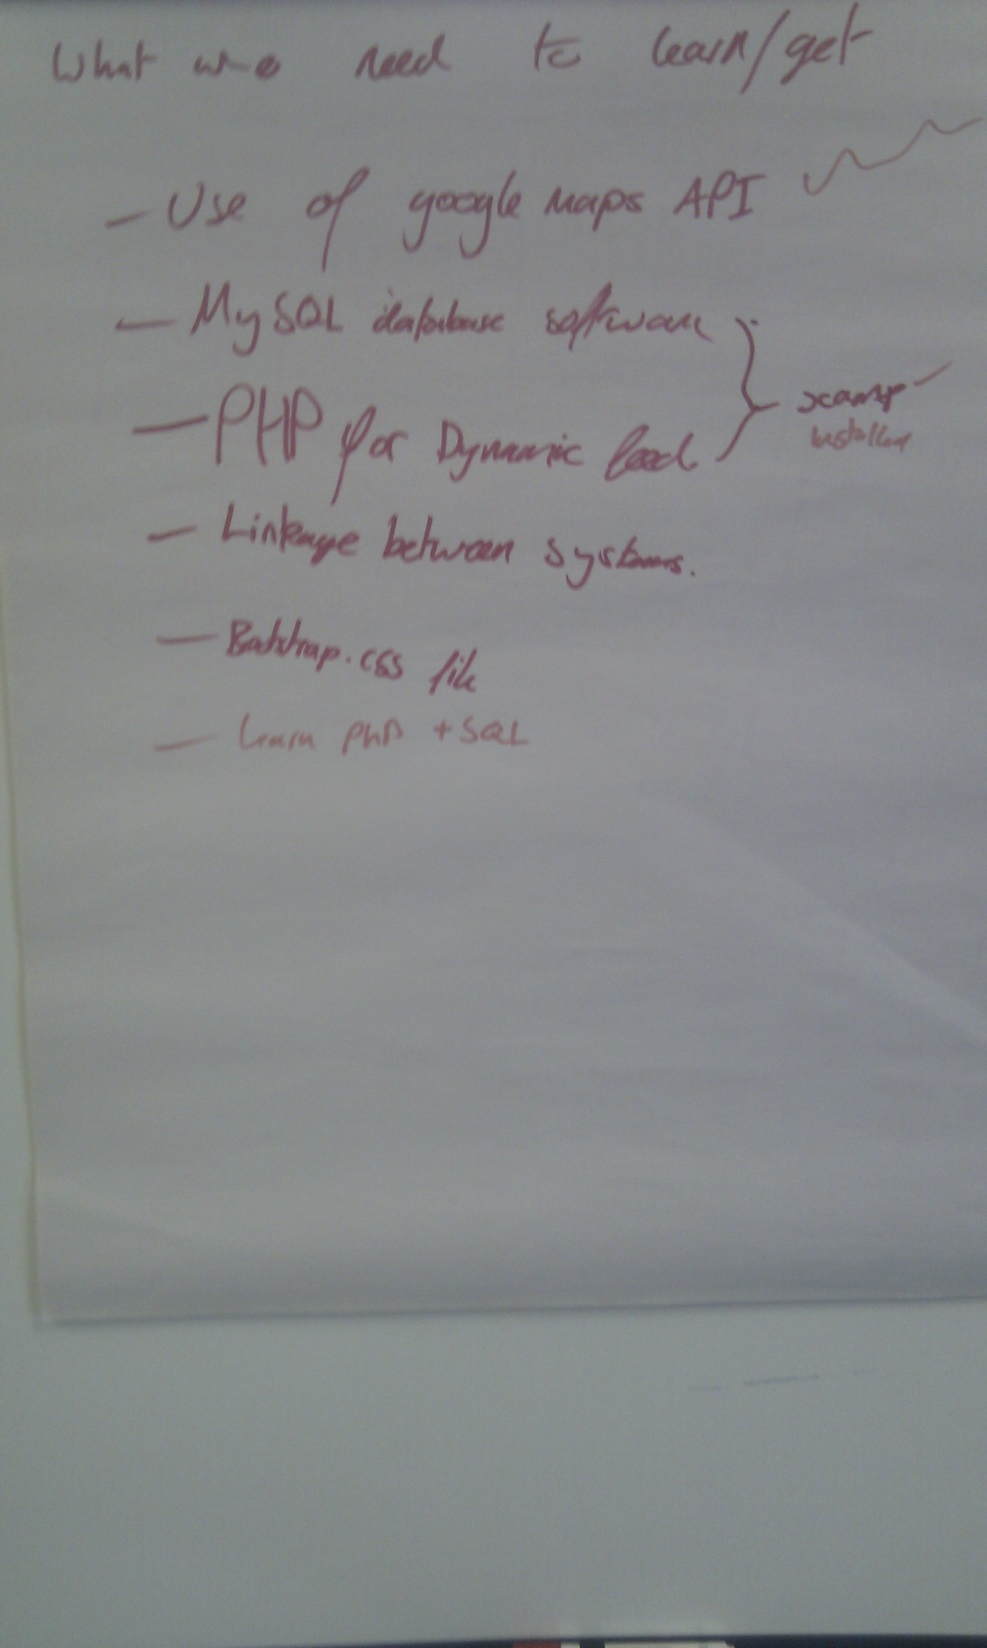 What we need to learn/get
- Use of google Maps API
- MySQL database software
- PHP for Dynamic load
xampp
installed
- Linkage between systems.
- Bootstrap.css file
- learn PHP + SQL